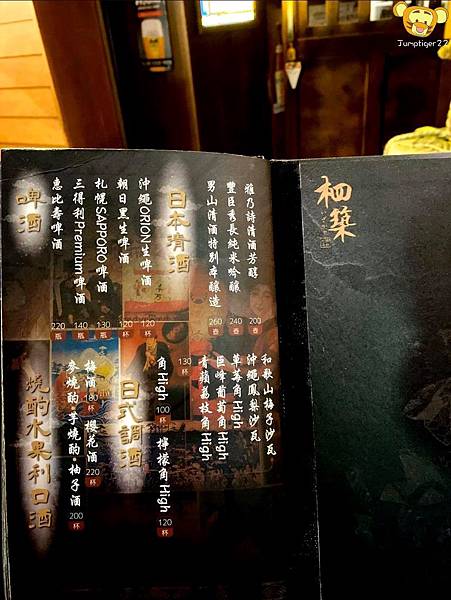 Jumptiger22
柶築
日本清酒
雅乃詩清酒芳醇 200 壺
豐臣秀長純米吟釀 240 壺
男山清酒特別本釀造 260 壺
啤酒
沖繩ORION生啤酒 120 杯
朝日黑生啤酒 120 杯
札幌SAPPORO啤酒 130 瓶
三得利Premium啤酒 140 瓶
惠比壽啤酒 220 瓶
日式調酒
和歌山梅子沙瓦
沖繩鳳梨沙瓦
草莓角High
巨峰葡萄角High
青蘋荔枝角High
130 杯
角High 100 杯
檸檬角High 120 杯
燒酌水果利口酒
梅酒 180 杯
櫻花酒 220 杯
麥燒酌·芋燒酌·柚子酒 200 杯